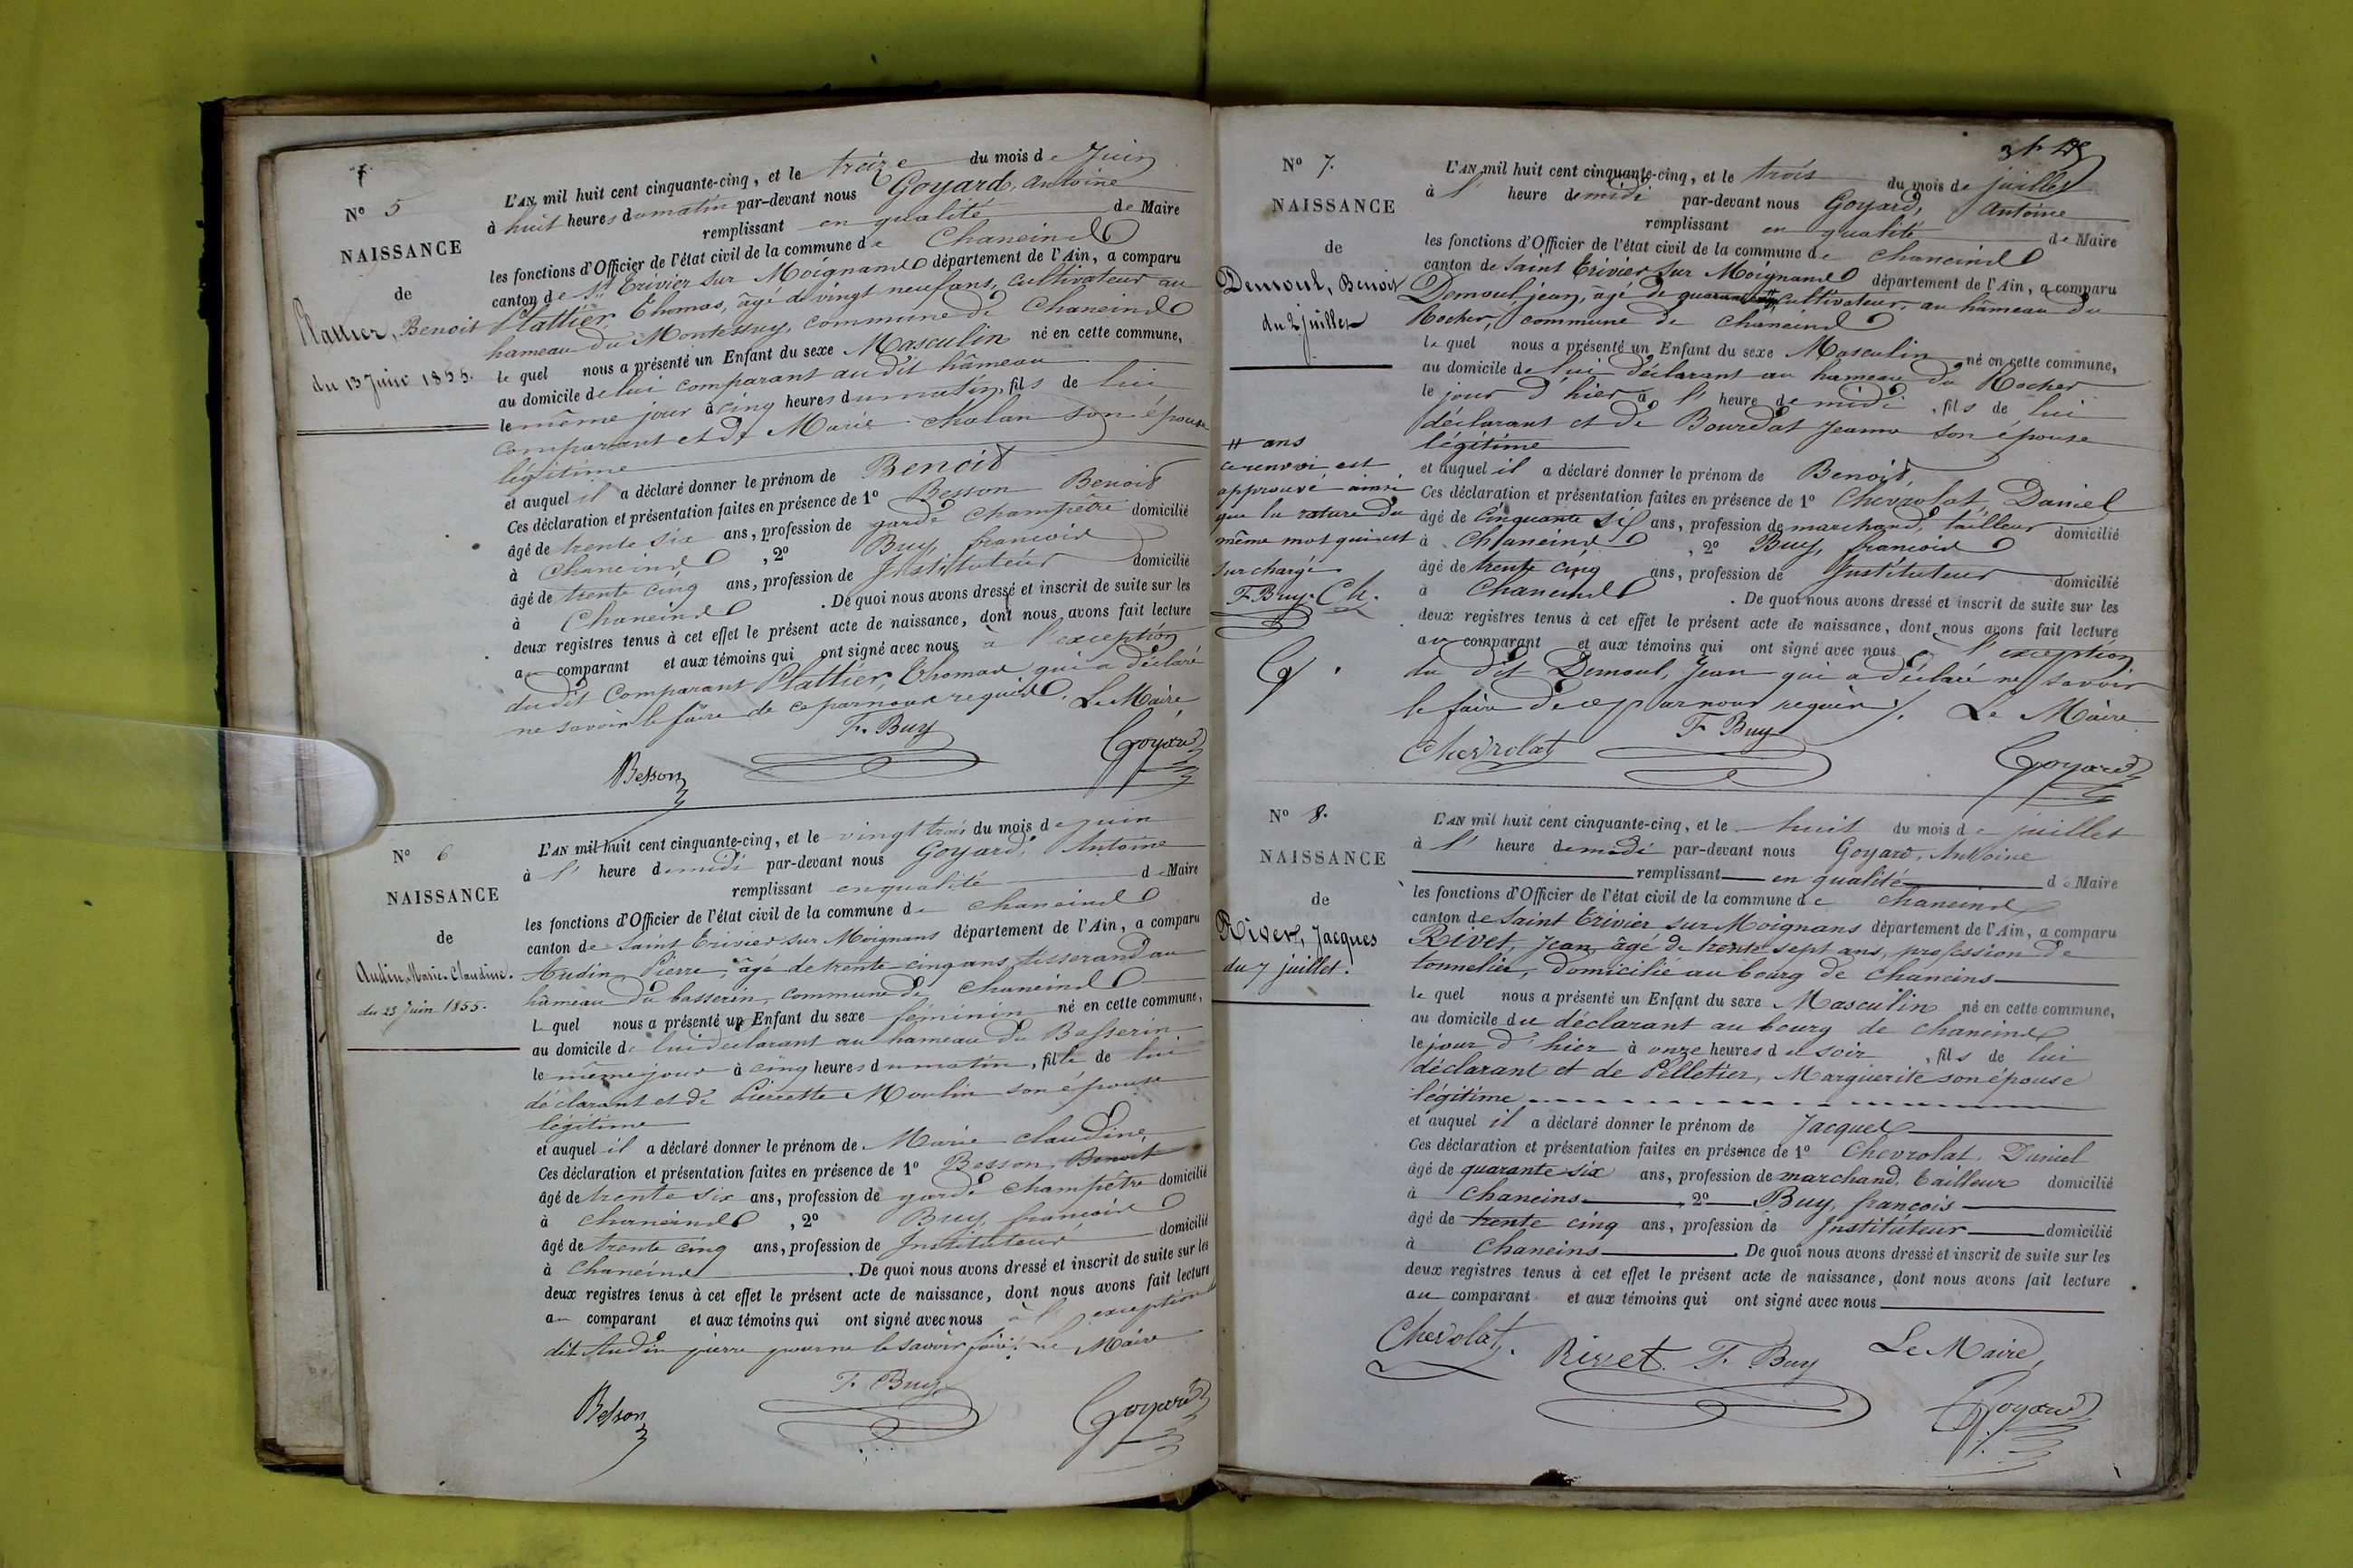 N° 5
NAISSANCE
de
Plattier, Benoit
du 13 Juin 1855.
L'AN mil huit cent cinquante-cinq, et le treize du mois de Juin
à huit heures du matin par-devant nous Goyard, Antoine
remplissant en qualité de Maire
les fonctions d'Officier de l'état civil de la commune de Chaneins
canton de St Trivier sur Moignans département de l'Ain, a comparu
Plattier, Thomas, âgé de vingt neuf ans, cultivateur au
hameau du Montessuy, commune de Chaneins
le quel nous a présenté un Enfant du sexe Masculin né en cette commune,
au domicile de lui comparant au dit hâmeau
le même jour à cinq heures du matin, fils de lui
comparant et de Marie Chalan son épouse
légitime
et auquel il a déclaré donner le prénom de Benoit
Ces déclaration et présentation faites en présence de 1° Besson Benoit
âgé de trente six ans, profession de garde champêtre domicilié
à Chaneins, 2° Buy, francois
âgé de trente cinq ans, profession de Instituteur domicilié
à Chaneins. De quoi nous avons dressé et inscrit de suite sur les
deux registres tenus à cet effet le présent acte de naissance, dont nous avons fait lecture
au comparant et aux témoins qui ont signé avec nous à l'exception
du dit Comparant Plattier, Thomas qui a déclaré
ne savoir le faire de ce par nous requis. Le Maire
Besson F. Buy Goyard
N° 6
NAISSANCE
de
Audin, Marie-Claudine.
du 23 Juin 1855.
L'AN mil huit cent cinquante-cinq, et le vingt trois du mois de juin
à l' heure de midi par-devant nous Goyard, Antoine
remplissant en qualité de Maire
les fonctions d'Officier de l'état civil de la commune de Chaneins
canton de Saint Trivier sur Moignans département de l'Ain, a comparu
Audin, Pierre, âgé de trente-cinq ans, tisserand au
hâmeau du basserin, commune de Chaneins
le quel nous a présenté un Enfant du sexe féminin né en cette commune,
au domicile de lui déclarant au hameau du Basserin
le même jour à cinq heures du matin, fille de lui
déclarant et de Pierrette Moulin son épouse
légitime
et auquel il a déclaré donner le prénom de Marie claudine,
Ces déclaration et présentation faites en présence de 1° Besson, Benoit
âgé de trente six ans, profession de garde champêtre domicilié
à Chaneins, 2° Buy, francois
âgé de trente cinq ans, profession de Instituteur domicilié
à Chaneins. De quoi nous avons dressé et inscrit de suite sur les
deux registres tenus à cet effet le présent acte de naissance, dont nous avons fait lecture
au comparant et aux témoins qui ont signé avec nous à l'exception du
dit Audin pierre pour ne le savoir faire. Le Maire
Besson F. Buy Goyard
N° 7.
NAISSANCE
de
Demoul, Benoit
du 2 juillet
# ans
ce renvoi est
approuvé ainsi
que la rature du
même mot qui est
surchargé
F. Buy. Ch.
G.
L'AN mil huit cent cinquante-cinq, et le trois du mois de juillet
à l' heure de midi par-devant nous Goyard, Antoine
remplissant en qualité de Maire
les fonctions d'Officier de l'état civil de la commune de Chaneins
canton de Saint Trivier sur Moignans département de l'Ain, a comparu
Demoul, jean, âgé de quarante # cultivateur, au hâmeau du
Rocher, commune de Chaneins
le quel nous a présenté un Enfant du sexe Masculin né en cette commune,
au domicile de lui déclarant au hameau du Rocher
le jour d'hier à l' heure de midi, fils de lui
déclarant et de Bourdat Jeanne son épouse
légitime
et auquel il a déclaré donner le prénom de Benoit,
Ces déclaration et présentation faites en présence de 1° Chevrolat, Daniel
âgé de Cinquante six ans, profession de marchand, tailleur domicilié
à Chaneins, 2° Buy, francois
âgé de trente cinq ans, profession de Instituteur domicilié
à Chaneins. De quoi nous avons dressé et inscrit de suite sur les
deux registres tenus à cet effet le présent acte de naissance, dont nous avons fait lecture
au comparant et aux témoins qui ont signé avec nous à l'exception
du dit Demoul, Jean qui a déclaré ne savoir
le faire de ce par nous requis. Le Maire
Chevrolat F Buy Goyard
N° 8.
NAISSANCE
de
Rivet, Jacques
du 7 juillet.
L'AN mil huit cent cinquante-cinq, et le huit du mois de juillet
à l' heure de midi par-devant nous Goyard, Antoine
remplissant en qualité de Maire
les fonctions d'Officier de l'état civil de la commune de chaneins
canton de Saint Trivier sur Moignans département de l'Ain, a comparu
Rivet, Jean âgé de trente sept ans, profession de
tonnelier, domicilié au bourg de Chaneins
le quel nous a présenté un Enfant du sexe Masculin né en cette commune,
au domicile du déclarant au bourg de Chaneins
le jour d'hier à onze heures du soir, fils de lui
déclarant et de Pelletier, Marguerite son épouse
légitime
et auquel il a déclaré donner le prénom de Jacques
Ces déclaration et présentation faites en présence de 1° Chevrolat, Daniel
âgé de quarante six ans, profession de marchand Tailleur domicilié
à Chaneins, 2° Buy, françois
âgé de trente cinq ans, profession de Instituteur domicilié
à Chaneins. De quoi nous avons dressé et inscrit de suite sur les
deux registres tenus à cet effet le présent acte de naissance, dont nous avons fait lecture
au comparant et aux témoins qui ont signé avec nous
Chevrolat. Rivet. F. Buy Le Maire,
Goyard